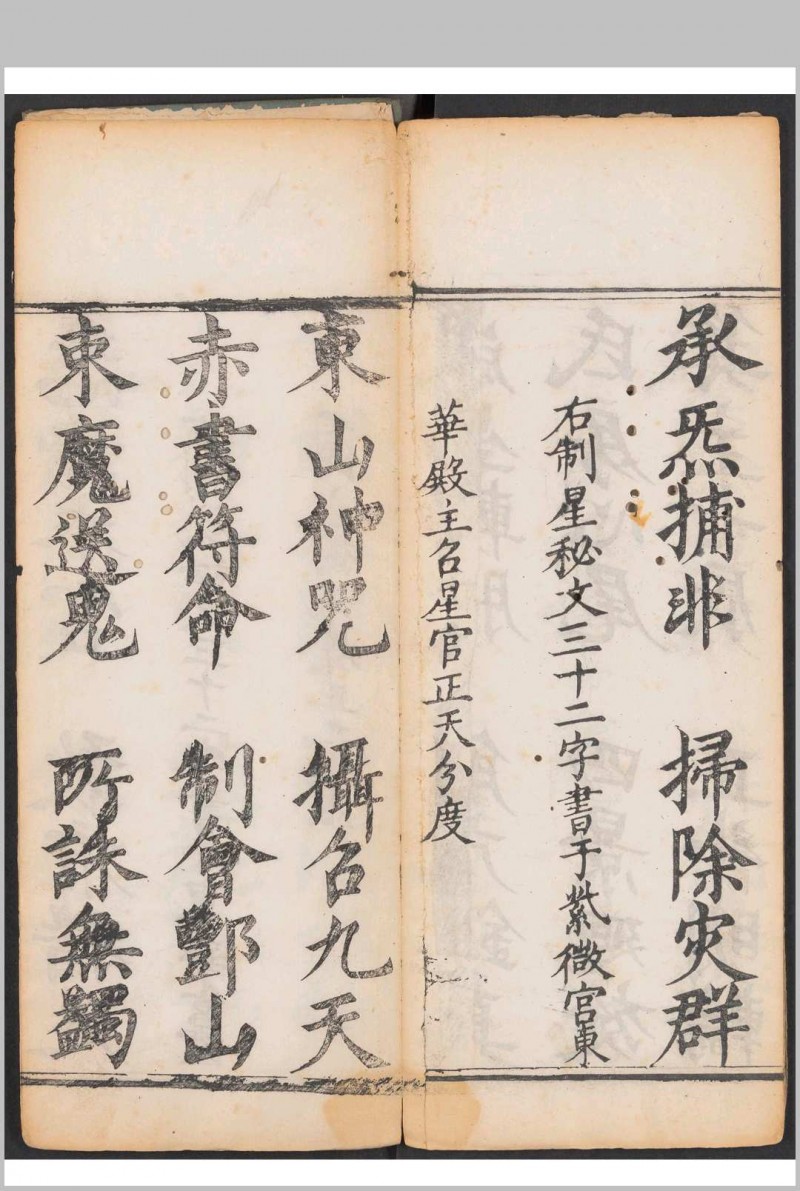 承炁捕非 掃除灾群
右制星秘文三十二字書于紫微宮東
華殿主召星官正天分度
東山神咒 攝召九天
赤書符命 制會酆山
束魔送鬼 所誅無蠲